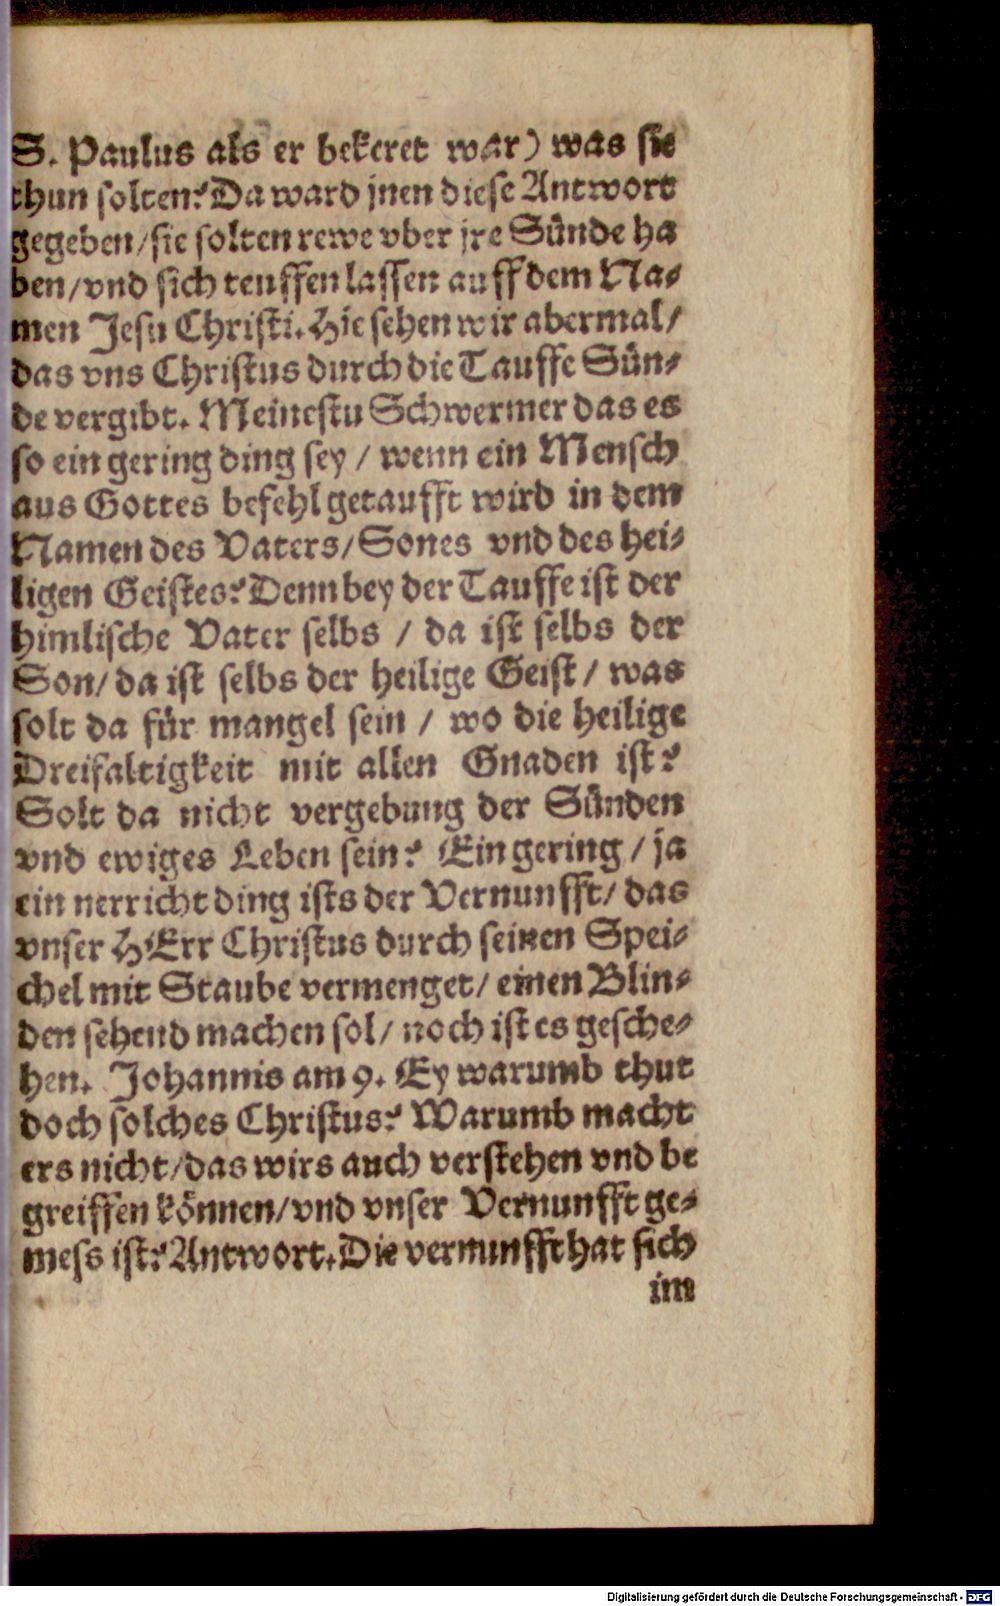 S. Paulus als er bekeret war) was sie
thun solten? Da ward jnen diese Antwort
gegeben/sie solten rewe vber jre Sünde ha
ben/vnd sich teuffen lassen auff dem Na-
men Jesu Christi. Hie sehen wir abermal/
das vns Christus durch die Tauffe Sün-
de vergibt. Meinestu Schwermer das es
so ein gering ding sey / wenn ein Mensch
aus Gottes befehl getaufft wird in dem
Namen des Vaters/Sones vnd des hei-
ligen Geistes? Denn bey der Tauffe ist der
himlische Vater selbs / da ist selbs der
Son/ da ist selbs der heilige Geist / was
solt da für mangel sein / wo die heilige
Dreifaltigkeit mit allen Gnaden ist?
Solt da nicht vergebung der Sünden
vnd ewiges Leben sein? Ein gering / ja
ein nerricht ding ists der Vernunfft/ das
vnser HErr Christus durch seinen Spei-
chel mit Staube vermenget/ einen Blin-
den sehend machen sol/ noch ist es gesche-
hen. Johannis am 9. Ey warumb thut
doch solches Christus? Warumb macht
ers nicht/das wirs auch verstehen vnd be
greiffen können/vnd vnser Vernunfft ge-
mess ist? Antwort. Die vernunfft hat sich
im
Digitalisierung gefördert durch die Deutsche Forschungsgemeinschaft - DFG